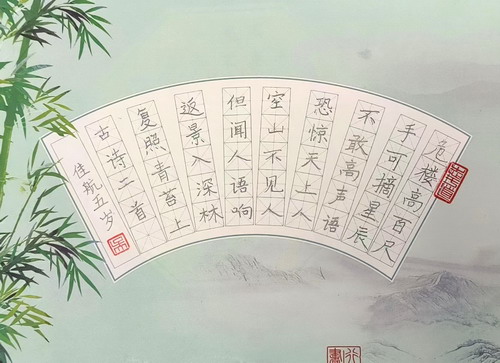 危楼高百尺
手可摘星辰
不敢高声语
恐惊天上人
空山不见人
但闻人语响
返景入深林
复照青苔上
古诗二首
佳航五岁